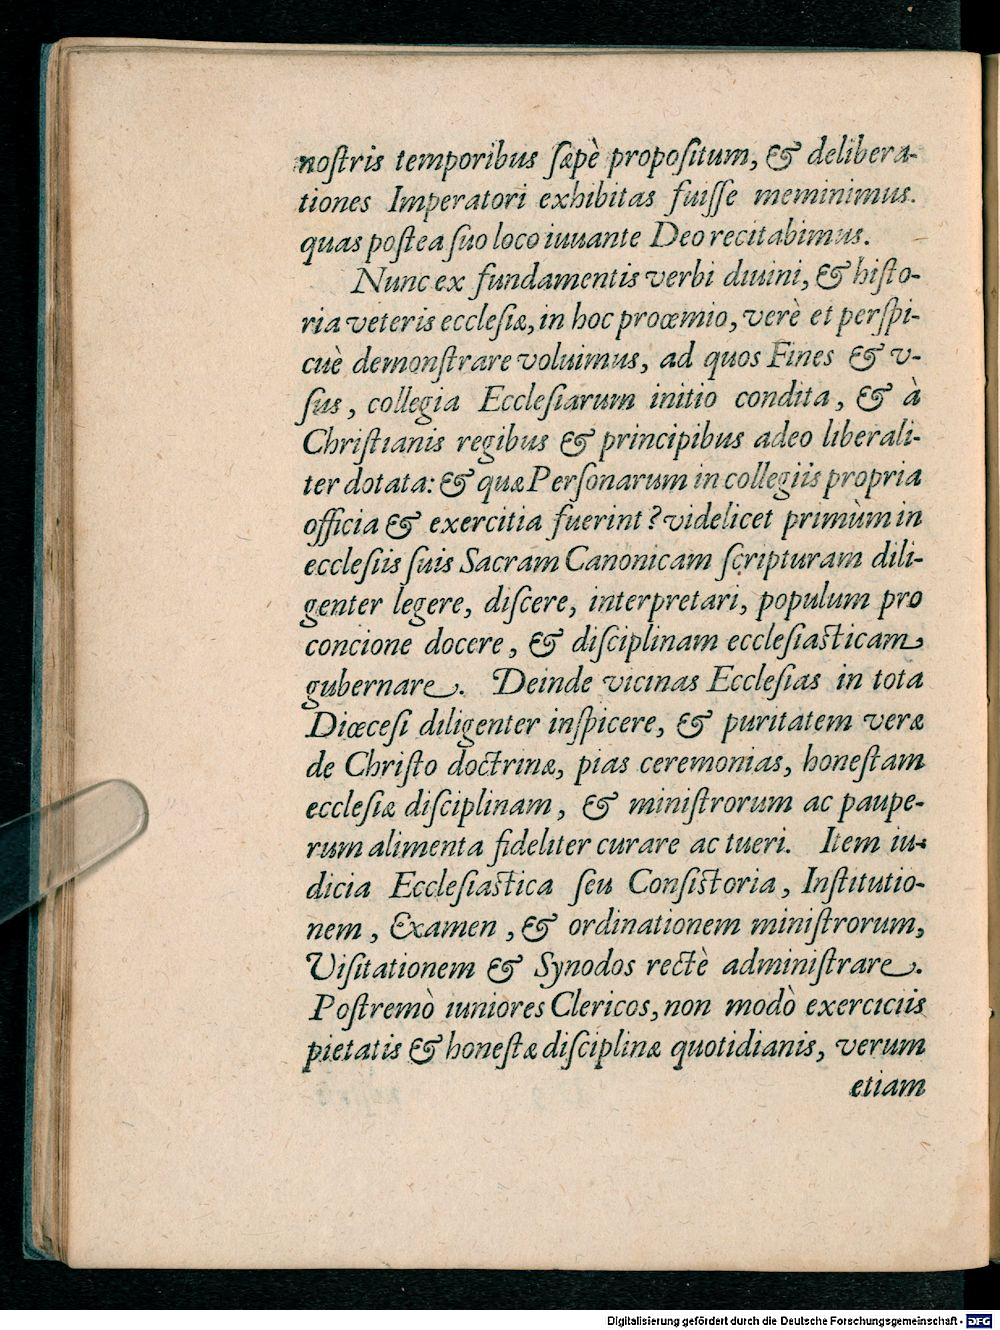 noſtris temporibus ſæpè propoſitum, & delibera-
tiones Imperatori exhibitas fuiſſe meminimus.
quas poſtea ſuo loco iuuante Deo recitabimus.
Nunc ex fundamentis verbi diuini, & hiſto-
ria veteris eccleſiæ, in hoc proœmio, verè et perſpi-
cuè demonſtrare voluimus, ad quos Fines & v-
ſus, collegia Eccleſiarum initio condita, & à
Chriſtianis regibus & principibus adeo liberali-
ter dotata: & quæ Perſonarum in collegiis propria
officia & exercitia fuerint? videlicet primùm in
eccleſiis ſuis Sacram Canonicam ſcripturam dili-
genter legere, diſcere, interpretari, populum pro
concione docere, & diſciplinam eccleſiaſticam
gubernare. Deinde vicinas Eccleſias in tota
Diœceſi diligenter inſpicere, & puritatem veræ
de Chriſto doctrinæ, pias ceremonias, honeſtam
eccleſiæ diſciplinam, & miniſtrorum ac paupe-
rum alimenta fideliter curare ac tueri. Item iu-
dicia Eccleſiaſtica ſeu Conſiſtoria, Inſtitutio-
nem, Examen, & ordinationem miniſtrorum,
Viſitationem & Synodos rectè adminiſtrare.
Poſtremò iuniores Clericos, non modò exerciciis
pietatis & honeſtæ diſciplinæ quotidianis, verum
etiam
Digitalisierung gefördert durch die Deutsche Forschungsgemeinschaft - DFG